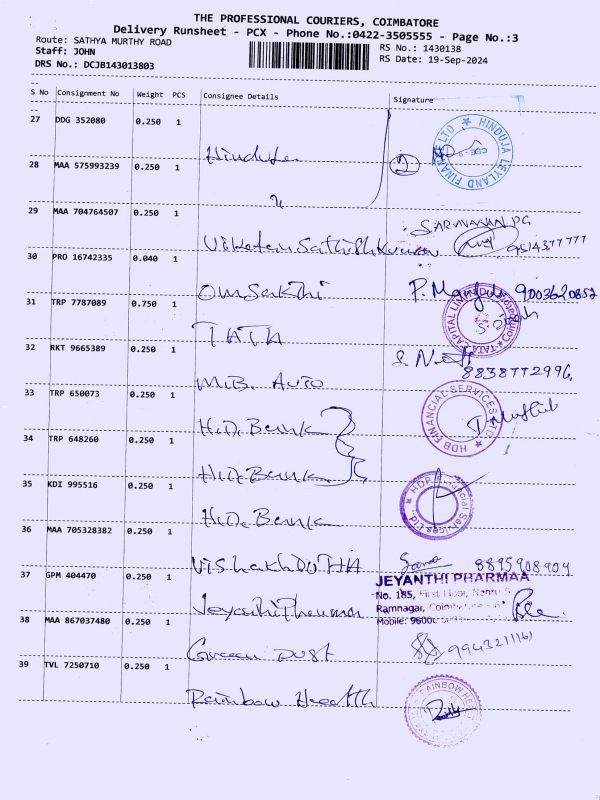 THE PROFESSIONAL COURIERS, COIMBATORE
Delivery Runsheet - PCX - Phone No.:0422-3505555 - Page No.:3
Route: SATHYA MURTHY ROAD
RS No.: 1430138
Staff: JOHN
RS Date: 19-Sep-2024
DRS No.: DCJB143013803
S No Consignment No Weight PCS Consignee Details Signature
27 DDG 352080 0.250 1
HINDUJA LEYLAND FINANCE LTD
Hinduja
2
28 MAA 575993239 0.250 1
29 MAA 704764507 0.250 1
SARAVANAN PG
Sathishkumar
9514377777
30 PRO 16742335 0.040 1
Om Sakthi P. 9003620852
31 TRP 7787089 0.750 1
TATA CAPITAL LIMITED
TATA
32 RKT 9665389 0.250 1
8838772996
M.B. AUTO
33 TRP 650073 0.250 1
HDB FINANCIAL SERVICES LTD
H.D. Bank
34 TRP 648260 0.250 1
H.D. Bank
35 KDI 995516 0.250 1
HDB Financial Services Ltd.
H.D. Bank
36 MAA 705328382 0.250 1
VishakhDUTHA 8895908909
37 GPM 404470 0.250 1
JEYANTHI PHARMAA
No. 185, First Floor,
Ramnagar,
Mobile: 9600
38 MAA 867037480 0.250 1
Green Dust 9943211161
39 TVL 7250710 0.250 1
RAINBOW
Rainbow Health